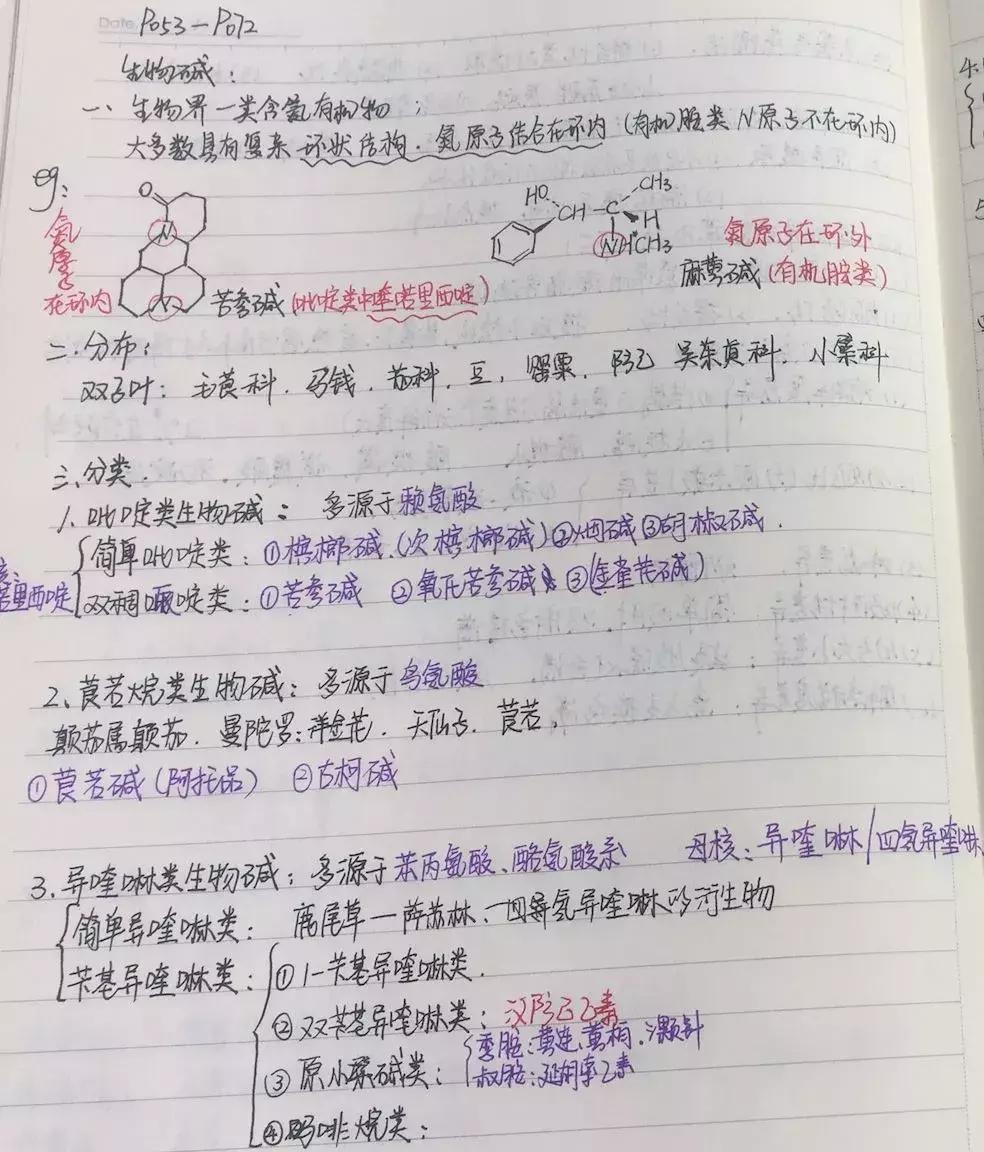 Date P053-P072
生物碱:
一、生物界一类含氮有机物;
大多数具有复杂环状结构.氮原子结合在环内(有机胺类N原子不在环内)
eg:
氮原子在环内
O
N
N
苦参碱(吡啶类中喹喏里西啶)
HO
CH-C
CH3
H
NHCH3
氮原子在环外
麻黄碱(有机胺类)
二.分布:
双子叶:毛茛科.马钱.茄科.豆,罂粟,防己 吴茱萸科.小檗科
三.分类.
1.吡啶类生物碱: 多源于赖氨酸
简单吡啶类:①槟榔碱.(次槟榔碱)②烟碱③胡椒碱.
双稠哌啶类:①苦参碱 ②氧化苦参碱 ③(金雀花碱)
里西啶
2、莨菪烷类生物碱:多源于鸟氨酸
颠茄属颠茄.曼陀罗:洋金花.天仙子.莨菪,
①莨菪碱(阿托品) ②古柯碱
3.异喹啉类生物碱:多源于苯丙氨酸、酪氨酸系 母核:异喹啉/四氢异喹啉
简单异喹啉类: 鹿尾草-萨苏林、四氢异喹啉的衍生物
苄基异喹啉类:①1-苄基异喹啉类.
②双苄基异喹啉类:汉防己乙素
③原小檗碱类:季胺:黄连、黄柏、
叔胺:延胡索乙素
④吗啡烷类: